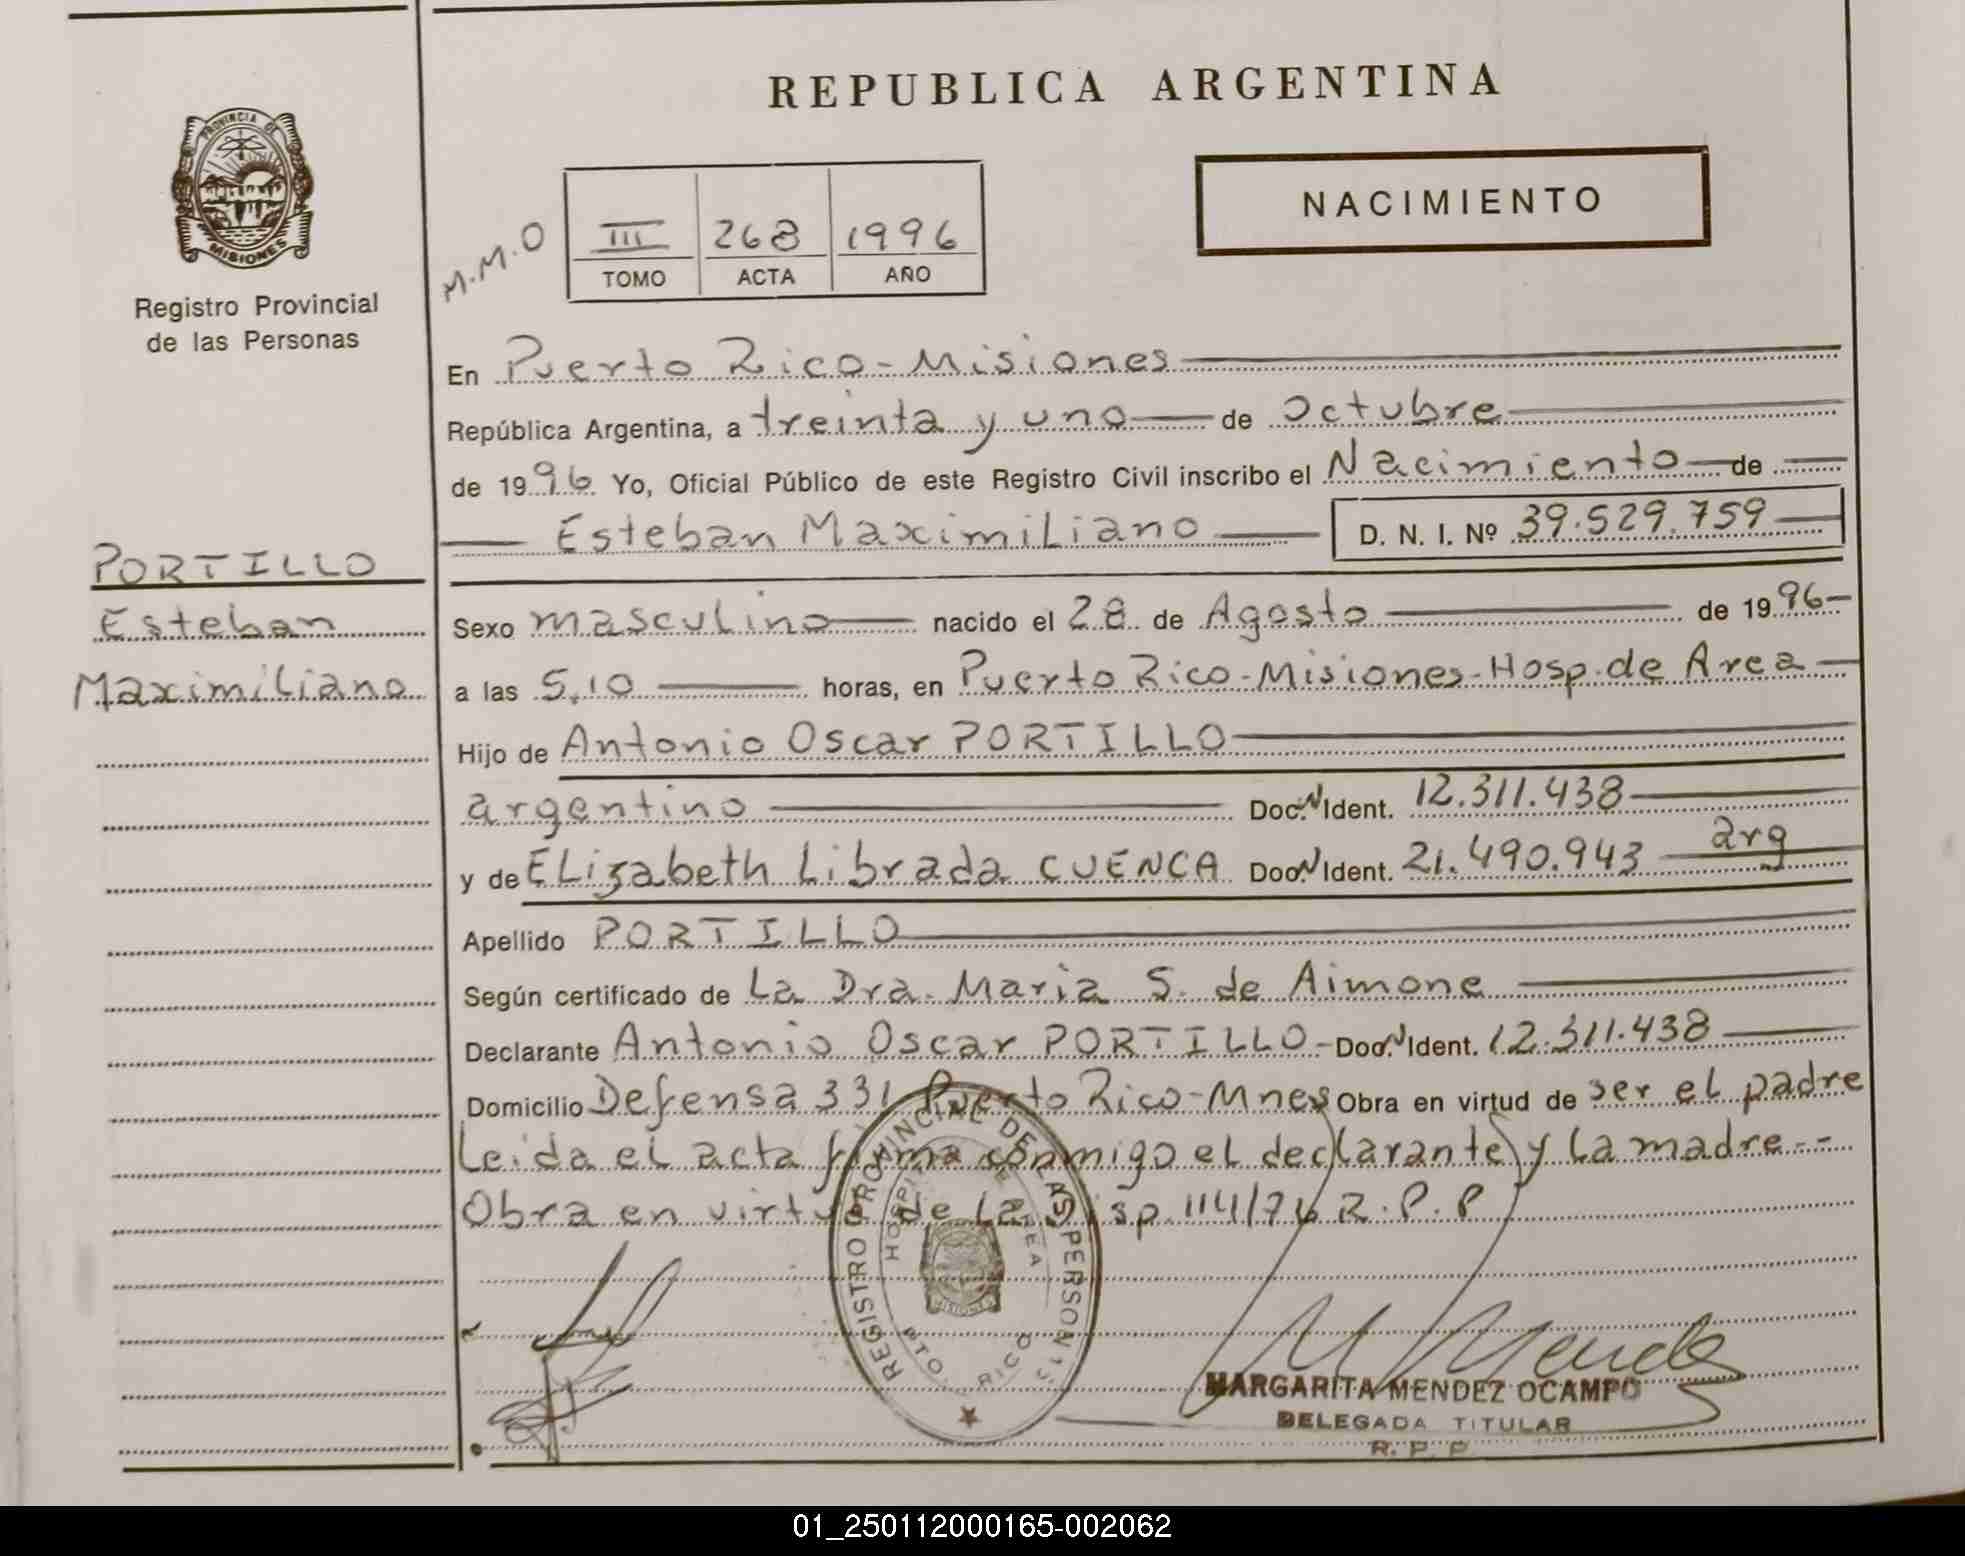 REPUBLICA ARGENTINA
NACIMIENTO
PROVINCIA DE
MISIONES
Registro Provincial
de las Personas
M.M.O
III 268 1996
TOMO ACTA AÑO
En Puerto Rico - Misiones
República Argentina, a treinta y uno de Octubre
de 1996 Yo, Oficial Público de este Registro Civil inscribo el Nacimiento de
Esteban Maximiliano D. N. I. Nº 39.529.759
PORTILLO
Esteban
Maximiliano
Sexo masculino nacido el 28 de Agosto de 1996
a las 5,10 horas, en Puerto Rico - Misiones - Hosp. de Area
Hijo de Antonio Oscar PORTILLO
argentino Doc. N Ident. 12.311.438
y de Elizabeth Librada CUENCA Doc. N Ident. 21.490.943 arg
Apellido PORTILLO
Según certificado de La Dra. Maria S. de Aimone
Declarante Antonio Oscar PORTILLO - Doc. N Ident. 12.311.438
Domicilio Defensa 331 Puerto Rico - Mnes Obra en virtud de ser el padre
Leida el acta firma conmigo el declarante y la madre --
Obra en virtud de la Disp. 114/76 R.P.P
REGISTRO PROVINCIAL DE LAS PERSONAS
HOSPI DE AREA
PTO. RICO
MISIONES
M Mendez
MARGARITA MENDEZ OCAMPO
DELEGADA TITULAR
R. P. P.
01_250112000165-002062